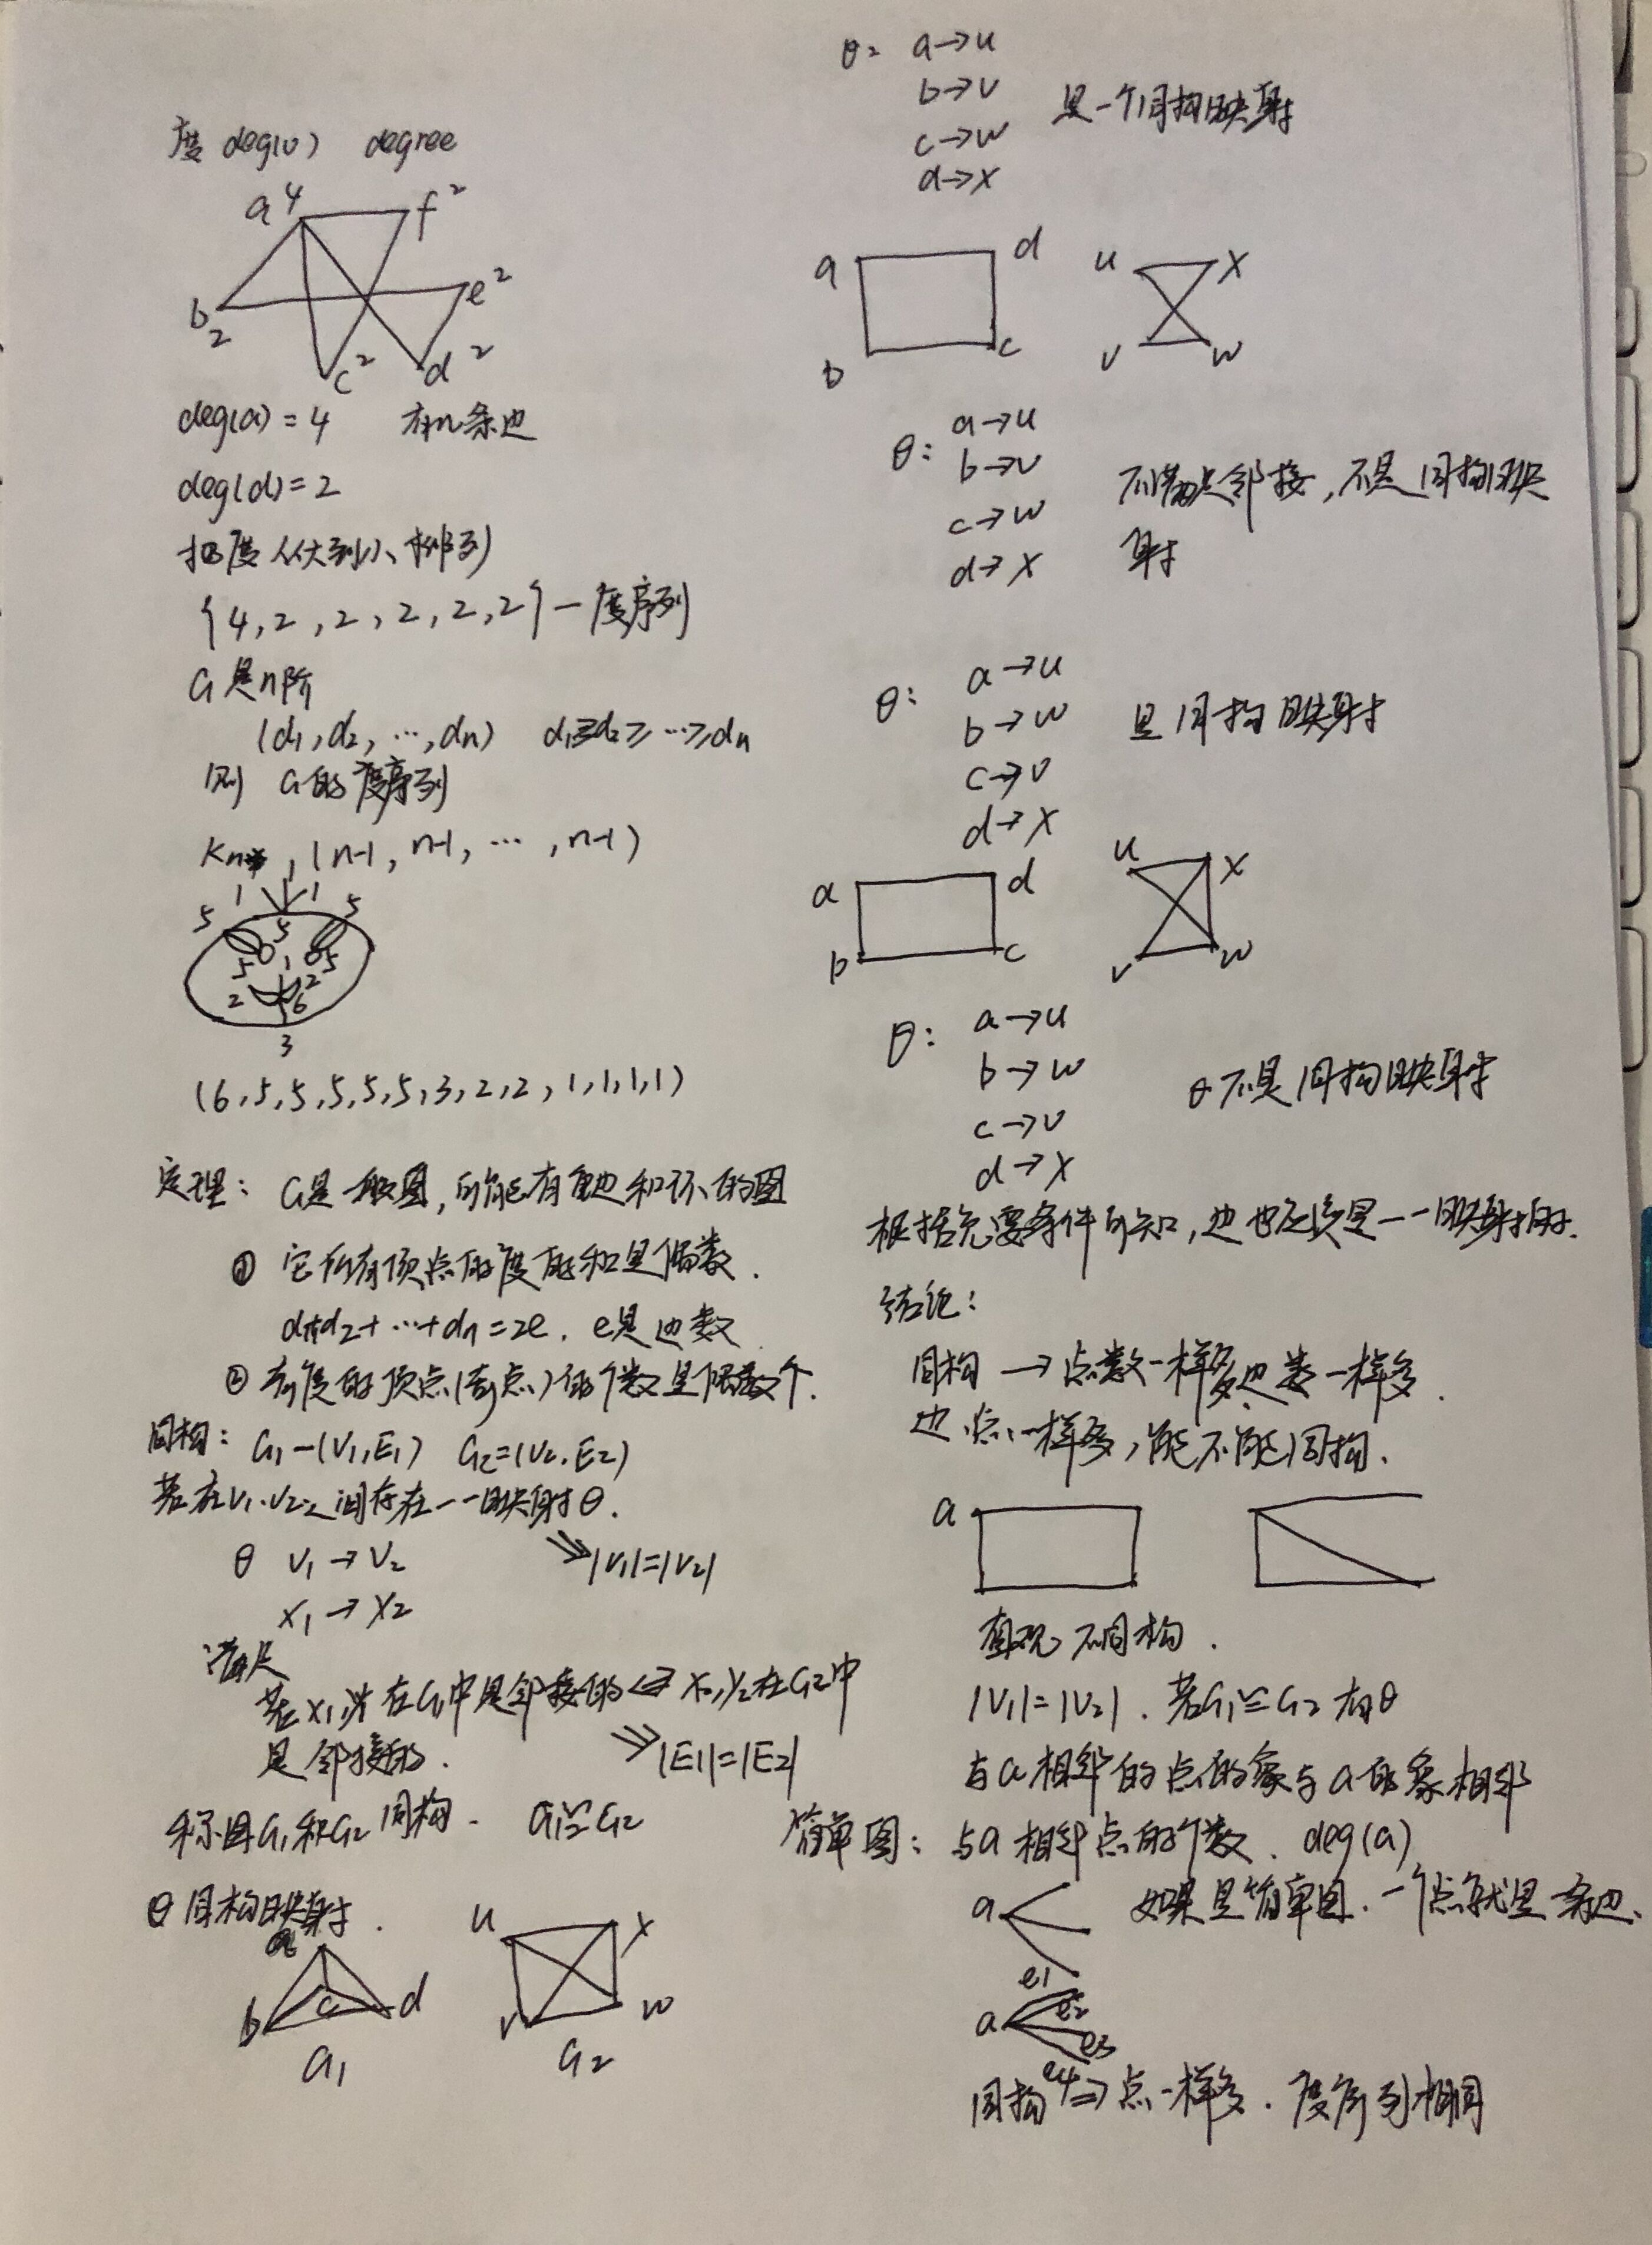 度 deg(v) degree
a 4 f 2
b 2 e 2
c 2 d 2
deg(a) = 4 有n条边
deg(d) = 2
把度从大到小排列
{4, 2, 2, 2, 2, 2} — 度序列
G是n阶
(d1, d2, …, dn) d1≥d2≥…≥dn
则 G的度序列
Kn , (n-1, n-1, …, n-1)
1 1
5 5 5
5 1 5
2 2
6
3
(6, 5, 5, 5, 5, 5, 3, 2, 2, 1, 1, 1, 1)
定理: G是一般图, 可能有重边和环的图
① 它所有顶点的度的和是偶数.
d1+d2+…+dn=2e. e是边数
② 奇度的顶点(奇点)的个数是偶数个.
同构: G1-(V1,E1) G2=(V2,E2)
若在V1.V2之间存在一一映射θ.
θ V1→V2 ⇒|V1|=|V2|
x1→x2
满足
若x1,y1在G1中是邻接的⇔x2,y2在G2中
是邻接的. ⇒|E1|=|E2|
称图G1和G2同构. G1≌G2
θ同构映射.
a u x
b c d v w
G1 G2
θ: a→u
b→v 是一个同构映射
c→w
d→x
a d u x
b c v w
θ: a→u
b→v 不满足邻接, 不是同构映
c→w 射
d→x
θ: a→u
b→w 是同构映射
c→v
d→x
a d u x
b c v w
θ: a→u
b→w θ不是同构映射
c→v
d→x
根据充要条件可知, 边也应该是一一映射的.
结论:
同构→点数一样多,边数一样多.
边.点一样多, 能不能同构.
a
直观不同构.
|V1|=|V2|. 若G1≌G2 有θ
与a相邻的点的象与a的象相邻
简单图: 与a相邻点的个数. deg(a)
a 如果是简单图. 一个点就是一条边.
a e1 e2 e3 e4
同构⇒点一样多. 度序列相同